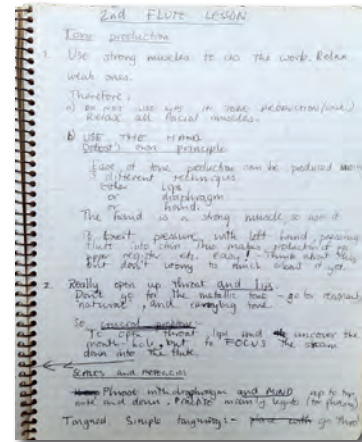 2nd FLUTE LESSON
Tone production
1. Use strong muscles to do the work. Relax
weak ones.
Therefore:
a) DO NOT USE LIPS IN TONE PRODUCTION
Relax all facial muscles.
b) USE THE HAND
main principle
Ease of tone production can be produced
3 different techniques.
either lips
or diaphragm
or hand.
The hand is a strong muscle, so use it
To exert pressure with left hand, pressing
flute into chin. This makes production of
register etc. easy! Think about this
but don't worry to much about it yet.
2. Really open up throat and lips.
Don't go for the metallic tone - go for resonant,
natural, and carrying tone.
So
To open throat, lips and uncover the
mouth-hole, but to FOCUS the stream
down into the flute.
SCALES AND ARPEGGIOS
Phrase with diaphragm and MIND up to top
note and down. Practise mainly legato (for phrasing)
Tongued Simple tonguing:- go